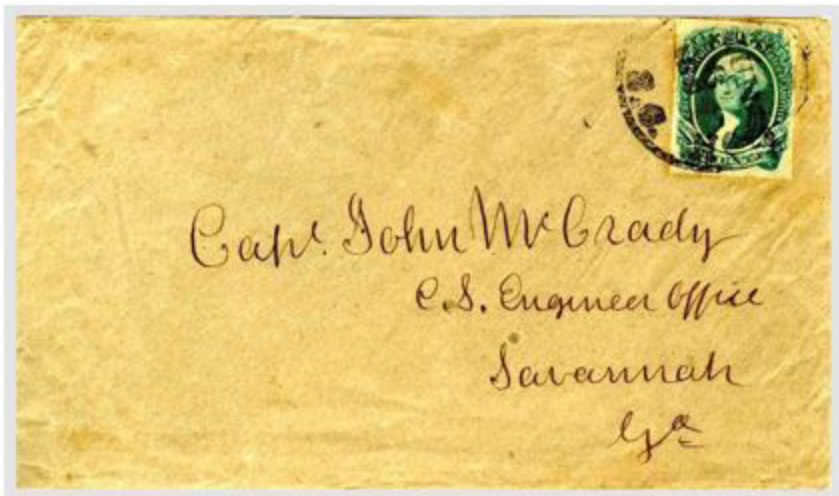 Capt. John McCrady
C.S. Engineer Office
Savannah
Ga